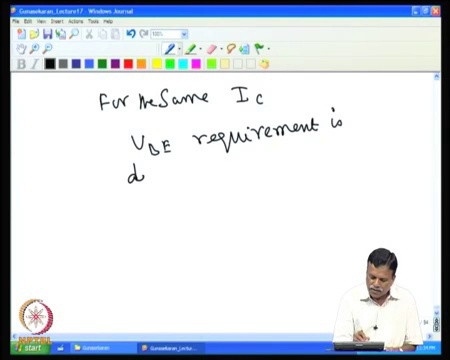 Gunasekaran_Lecture17 - Windows Journal
File Edit View Insert Actions Tools Help
100%
B I
For the Same I C
V BE requirement is
d
start
Gunasekaran
Gunasekaran_Lectu...